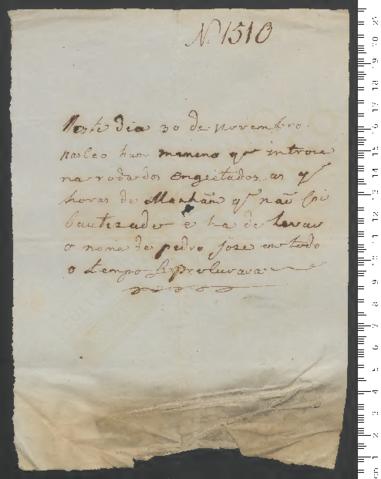 Nº 1510
Neste dia 30 de Novembro
nasceo hum menino q̃ introu
na roda dos Engeitados as
horas de Manhãn q̃ não foi
bautizado e ha de levar
o nome de pedro Joze em todo
o tempo Se procurara